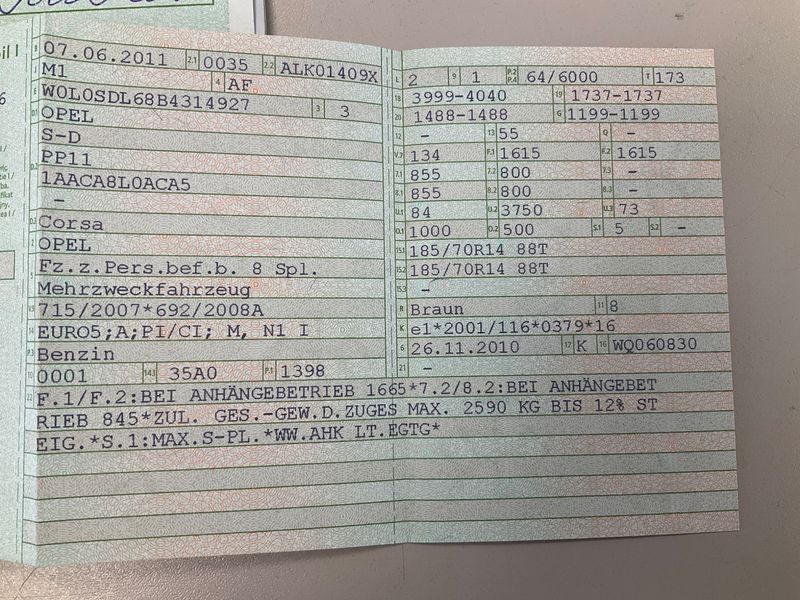 B 07.06.2011 2.1 0035 2.2 ALK01409X
J M1 4 AF
E W0L0SDL68B4314927 3 3
D.1 OPEL
S-D
D.2 PP11
1AACA8L0ACA5
–
D.3 Corsa
2 OPEL
5 Fz.z.Pers.bef.b. 8 Spl.
Mehrzweckfahrzeug
V.9 715/2007*692/2008A
14 EURO5;A;PI/CI; M, N1 I
P.3 Benzin
10 0001 14.1 35A0 P.1 1398
22 F.1/F.2:BEI ANHÄNGEBETRIEB 1665*7.2/8.2:BEI ANHÄNGEBET
RIEB 845*ZUL. GES.-GEW.D.ZUGES MAX. 2590 KG BIS 12% ST
EIG.*S.1:MAX.S-PL.*WW.AHK LT.EGTG*
L 2 9 1 P.2 P.4 64/6000 T 173
18 3999-4040 19 1737-1737
20 1488-1488 G 1199-1199
12 – 13 55 Q –
V.7 134 F.1 1615 F.2 1615
7.1 855 7.2 800 7.3 –
8.1 855 8.2 800 8.3 –
U.1 84 U.2 3750 U.3 73
O.1 1000 O.2 500 S.1 5 S.2 –
15.1 185/70R14 88T
15.2 185/70R14 88T
15.3 –
R Braun 11 8
K e1*2001/116*0379*16
6 26.11.2010 17 K 16 WQ060830
21 –